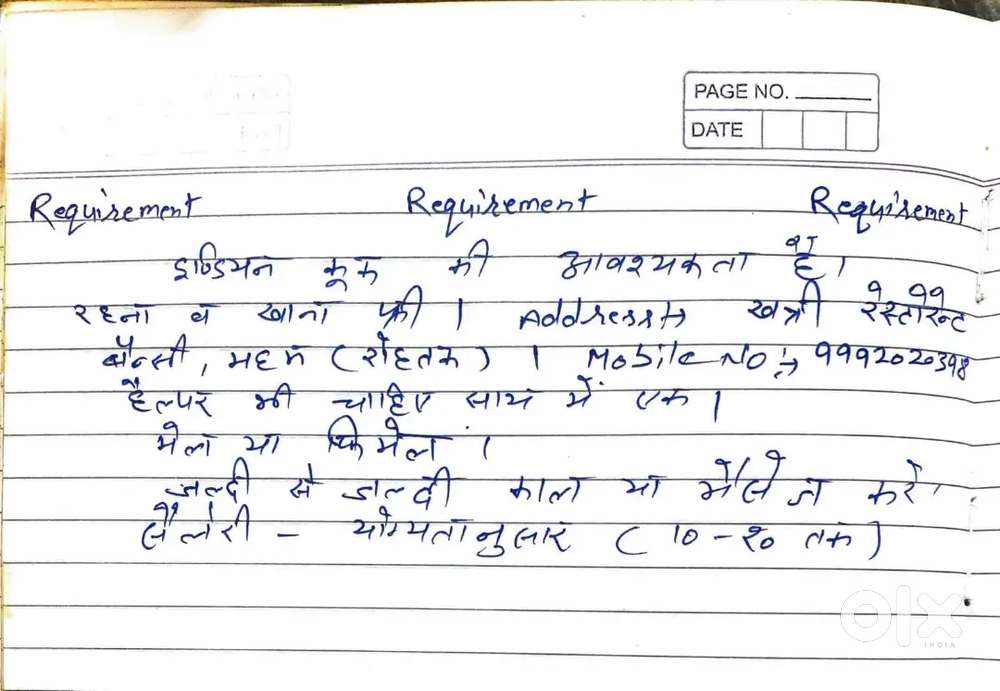 PAGE NO.
DATE
Requirement Requirement Requirement
इण्डियन कूक की आवश्यकता है।
रहना व खाना फ्री। Address:→ खत्री रेस्टोरेन्ट
भैन्सी, महम (रोहतक)। Mobile No:→ 9992020398
हैल्पर भी चाहिए साथ में एक।
मेल या फिमेल।
जल्दी से जल्दी काल या मैसेज करे
सैलेरी - योग्यतानुसार (10-20 तक)
OLX
INDIA